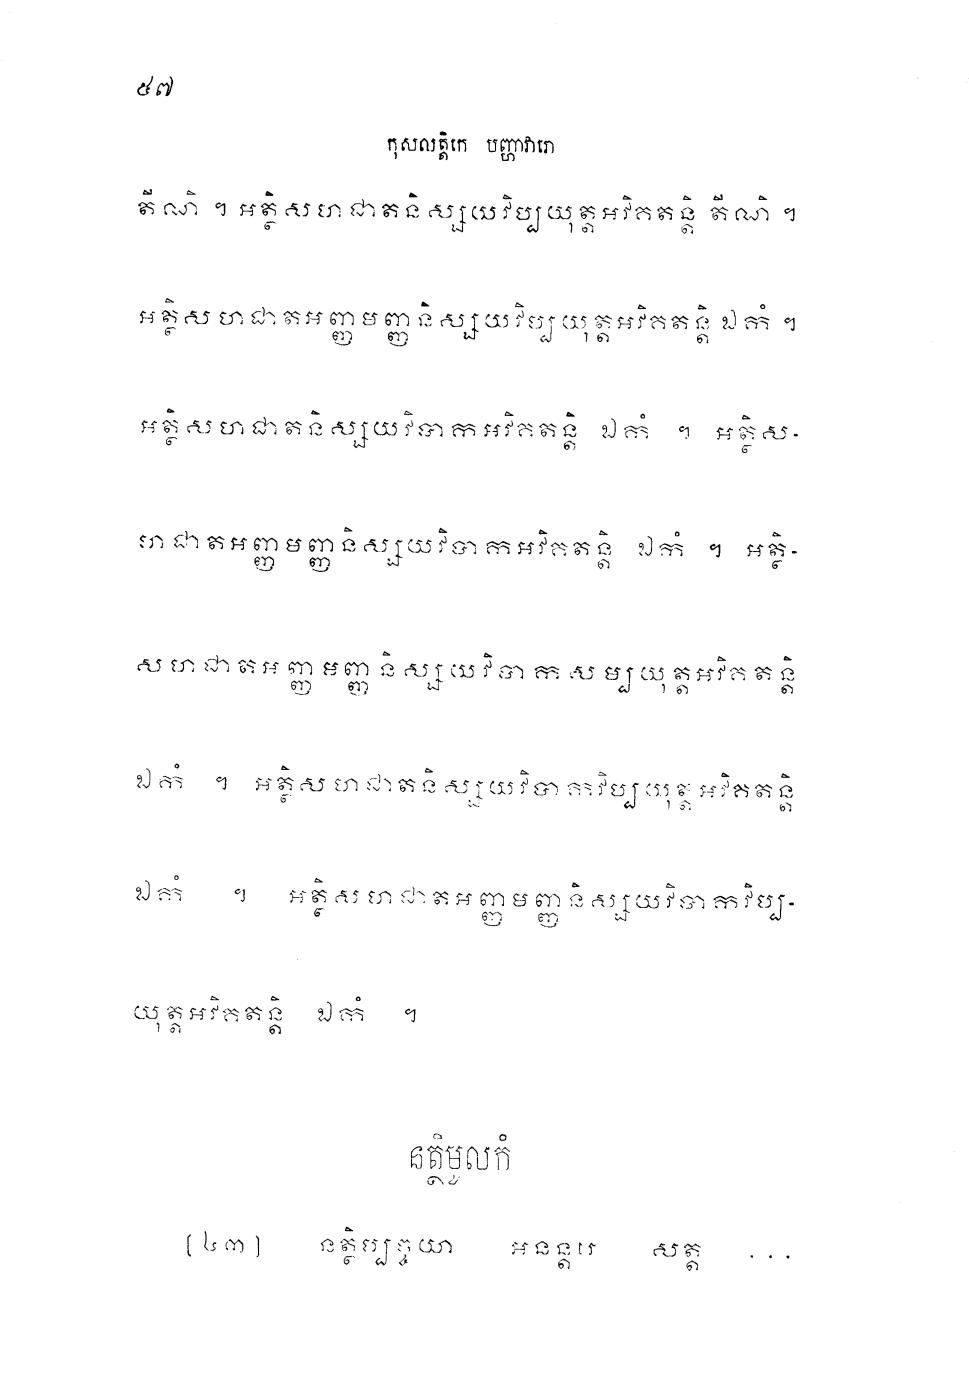 ៥៧
កុសលត្តិកេ បញ្ហាវារោ
តីណិ ។ អត្ថិសហជាតនិស្សយវិប្បយុត្តអវិគតន្តិ តីណិ ។
អត្ថិសហជាតអញ្ញមញ្ញនិស្សយវិប្បយុត្តអវិគតន្តិ ឯកំ ។
អត្ថិសហជាតនិស្សយវិបាកអវិគតន្តិ ឯកំ ។ អត្ថិស-
ហជាតអញ្ញមញ្ញនិស្សយវិបាកអវិគតន្តិ ឯកំ ។ អត្ថិ-
សហជាតអញ្ញមញ្ញនិស្សយវិបាកសម្បយុត្តអវិគតន្តិ
ឯកំ ។ អត្ថិសហជាតនិស្សយវិបាកវិប្បយុត្តអវិគតន្តិ
ឯកំ ។ អត្ថិសហជាតអញ្ញមញ្ញនិស្សយវិបាកវិប្ប-
យុត្តអវិគតន្តិ ឯកំ ។
នត្ថិមូលកំ
[៤៣] នត្ថិប្បច្ចយា អនន្តរេ សត្ត ...